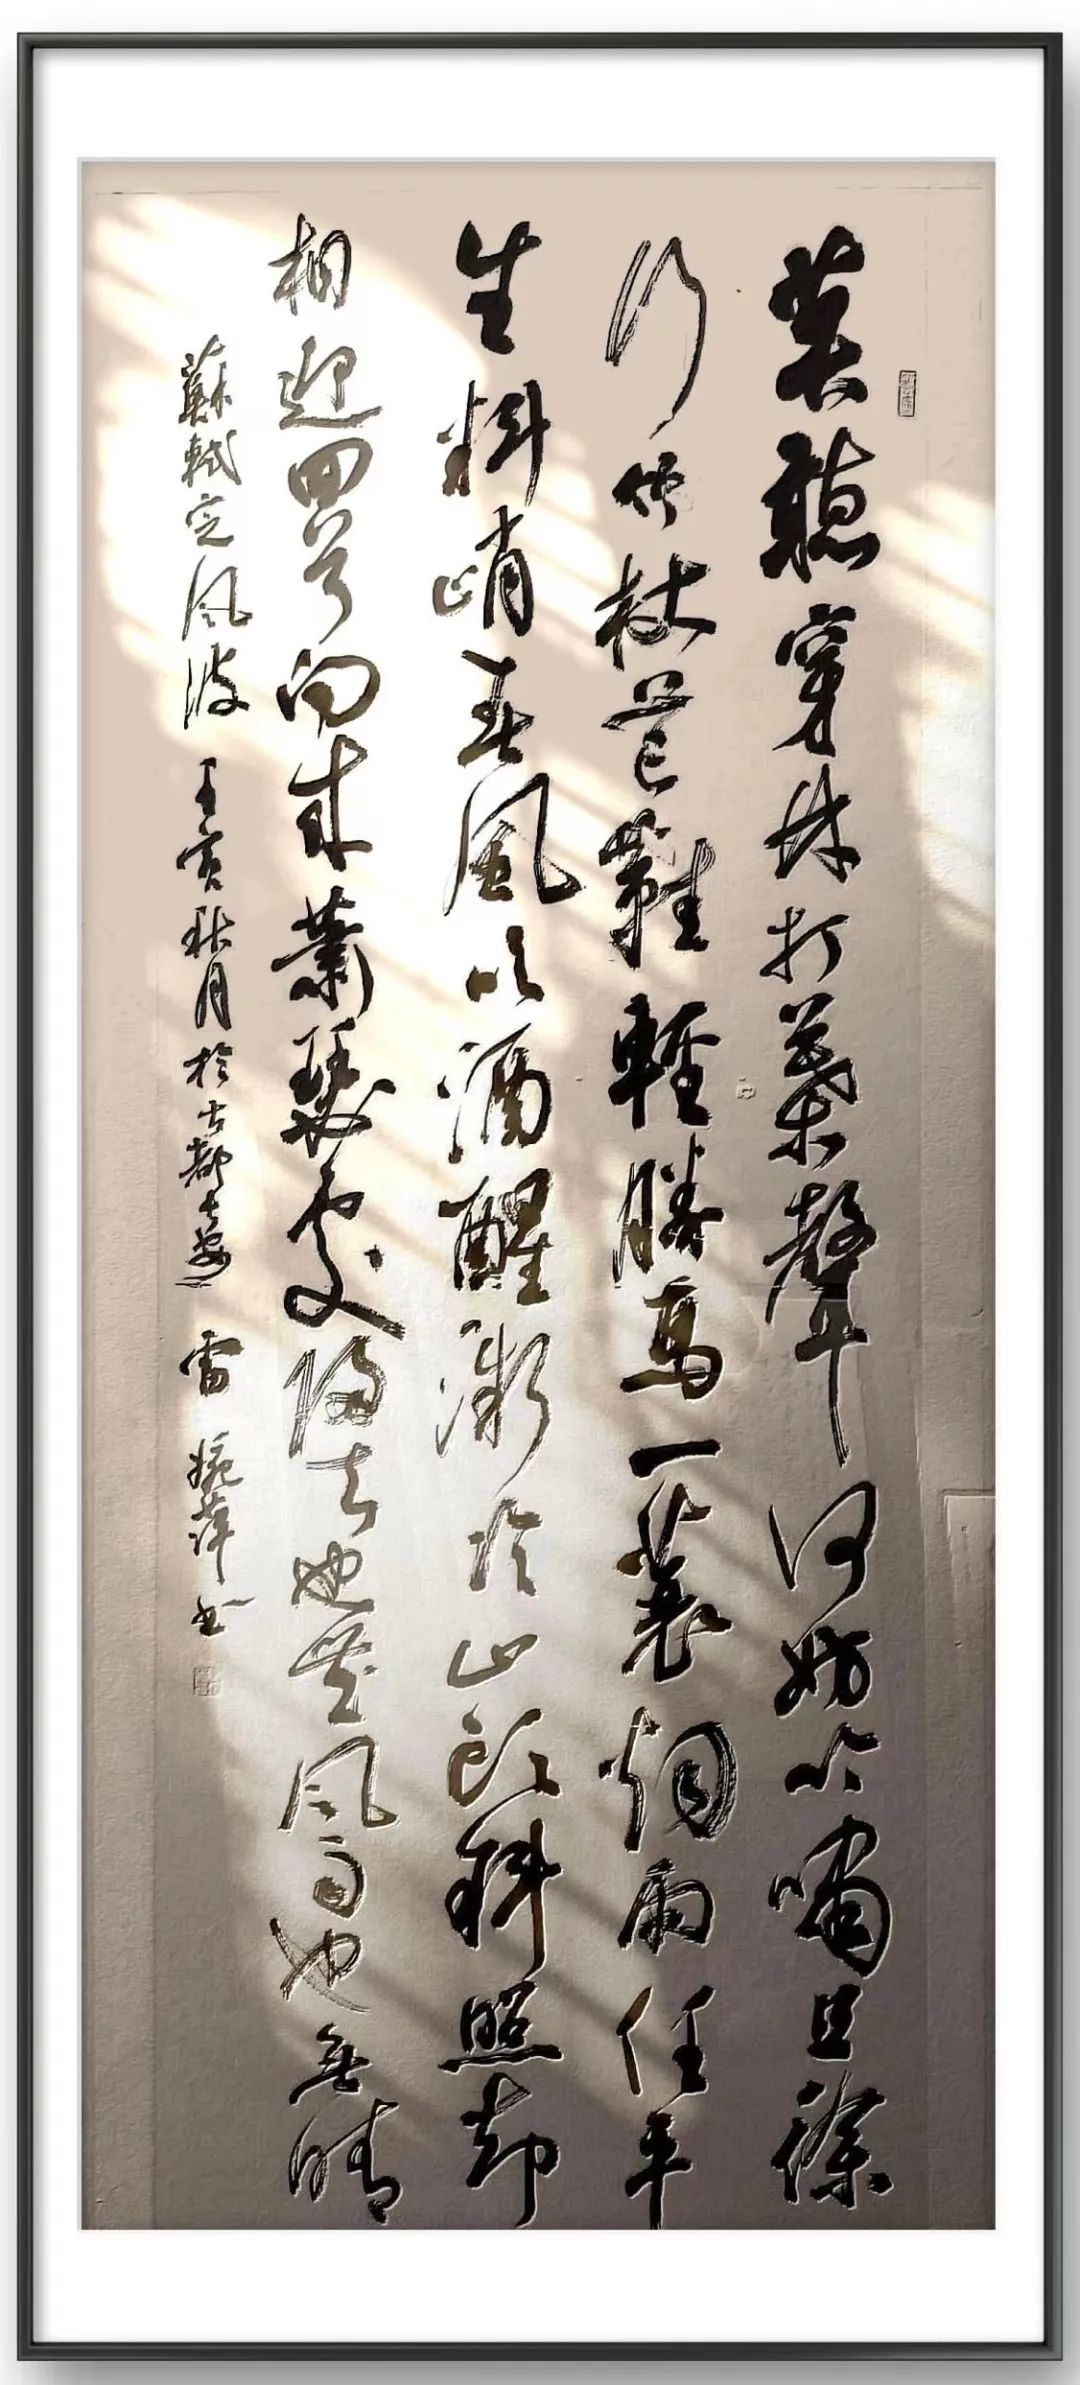 莫聽穿林打葉聲何妨吟嘯且徐
行竹杖芒鞋輕勝馬一蓑烟雨任平
生料峭春風吹酒醒微冷山頭斜照却
相迎回首向來蕭瑟處歸去也無風雨也無晴
蘇軾定風波 壬寅秋月於古都長安 雷婉萍书